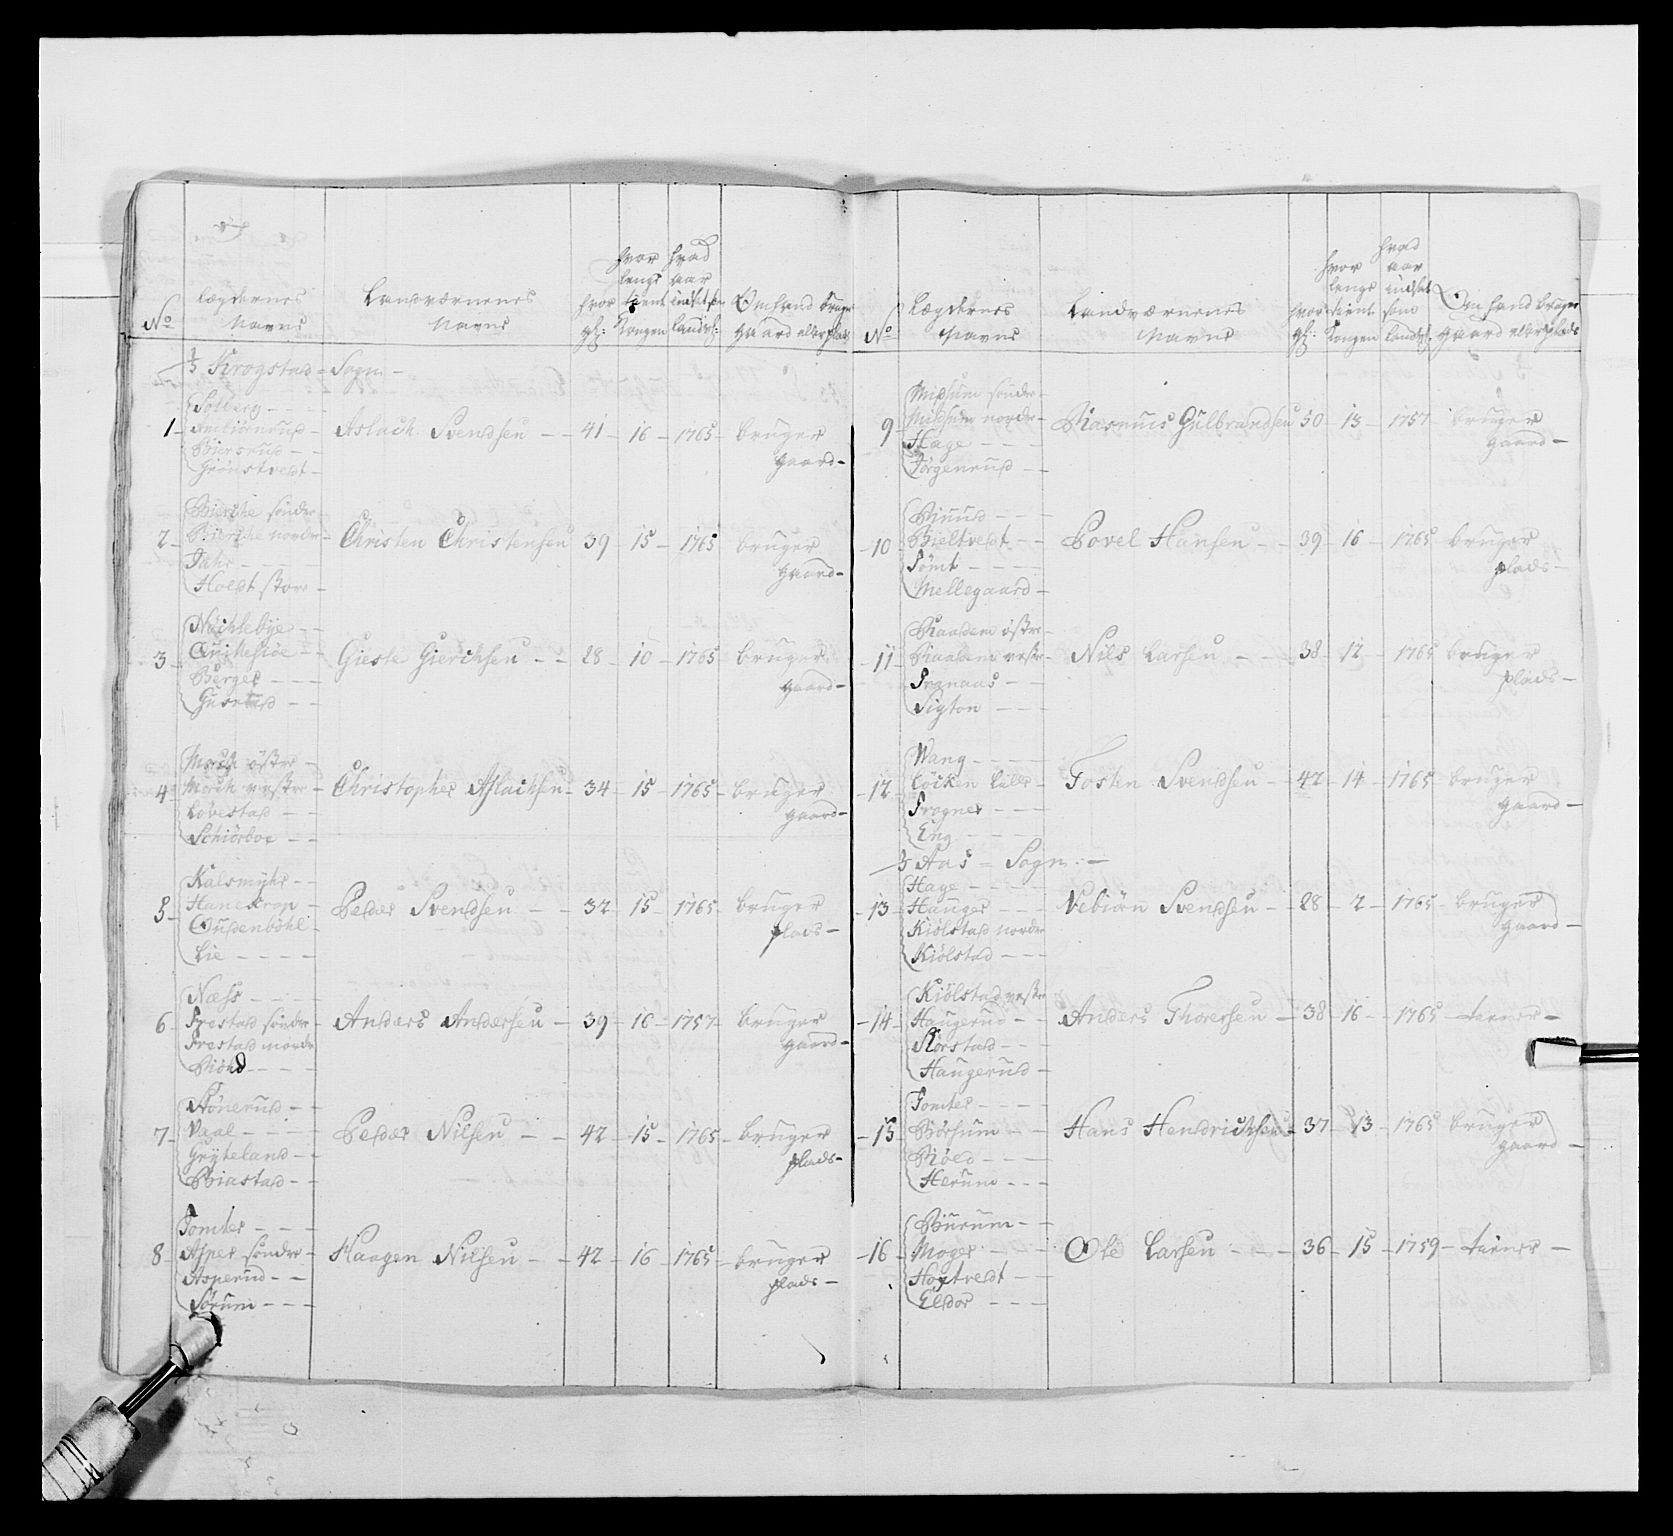 No
Lægdernes Navne
Landværnenes Navne
hvor gl:
hvor lenge tient Kongen
hvad aar indsat som landv:
Om hand bruger gaard eller plads
Krogstad Sogn
1 Solberg
Ambiörnrud
Biersrud
Grönstvedt
Aslach Svendsen 41 16 1765 bruger gaard
2 Bierche söndre
Bierche nordre
Dahr
Holdt store
Christen Christensen 39 15 1765 bruger gaard
3 Nächlebye
Qvikesiöe
Berger
Guserud
Gieste Gierichsen 28 10 1765 bruger gaard
4 Morch östre
Morch vestre
Lövestad
Schiörboe
Christopher Aslachsen 34 15 1765 bruger gaard
5 Kalsmyhr
Hanekrop
Oudenböhl
Lie
Peder Svendsen 32 15 1765 bruger plads
6 Næss
Frestad söndre
Frestad nordre
Anders Andersen 39 16 1757 bruger gaard
7 Stönerud
Vaal
Gryteland
Biastad
Peder Nilsen 42 15 1765 bruger plads
8 Tomter
Asper söndre
Asperud
Sörum
Haagen Nilsen 42 16 1765 bruger plads
No
Lægdernes Navne
Landværnenes Navne
hvor gl:
hvor lenge tient Kongen
hvad aar indsat som landv:
Om hand bruger gaard eller plads
9 Midsum söndre
Midsum nordre
Hage
Jörgenrud
Rasmus Gulbrandsen 50 13 1757 bruger gaard
10 Rinnd
Bieltvedt
Tömt
Mellegaard
Povel Hansen 39 16 1765 bruger plads
11 Raadem östre
Raadem vestre
Fronaas
Sigton
Nils Larsen 38 12 1765 bruger plads
12 Wang
Löcken Lille
Frogner
Eng
Tosten Svendsen 42 14 1765 bruger gaard
Aas Sogn
13 Hage
Hauger
Kiölstad nordre
Kiölstad
Vebiörn Svendsen 28 2 1765 bruger gaard
14 Kiölstad vestre
Haugerud
Korstad
Haugerud
Anders Thoresen 38 16 1765 tiener
15 Tomter
Börsum
Röed
Herum
Hans Hendrichsen 37 13 1765 bruger gaard
16 Burum
Moger
Hogtvedt
Eldor
Ole Larsen 36 15 1759 tiener